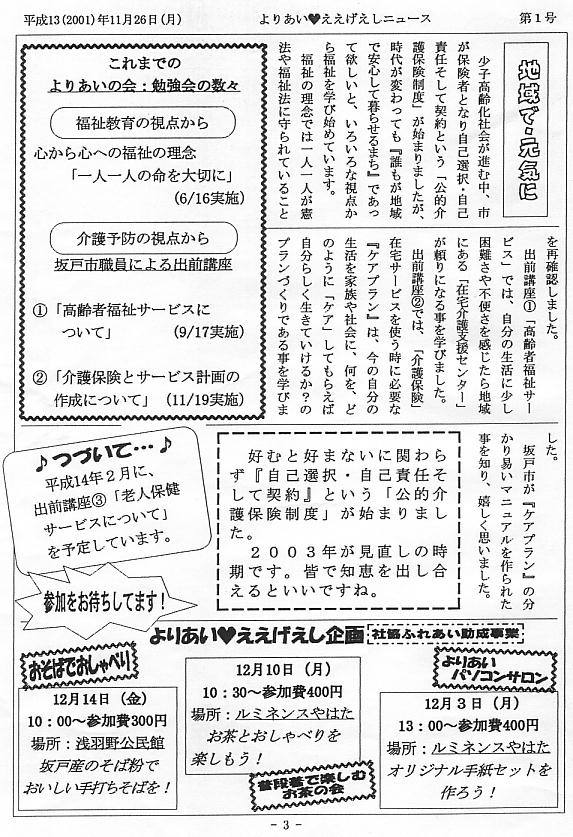 平成13(2001)年11月26日(月)　よりあい♥ええげえしニュース　第1号
地域で・元気に
少子高齢化社会が進む中、市
が保険者となり自己選択・自己
責任そして契約という「公的介
護保険制度」が始まりましたが、
時代が変わっても『誰もが地域
で安心して暮らせるまち』であっ
て欲しいと、いろいろな視点か
ら福祉を学び始めています。
福祉の理念では一人一人が憲
法や福祉法に守られていること
を再確認しました。
出前講座①「高齢者福祉サー
ビス」では、自分の生活に少し
困難さや不便さを感じたら地域
にある「在宅介護支援センター」
が頼りになる事を学びました。
出前講座②では、「介護保険」
在宅サービスを使う時に必要な
『ケアプラン』は、今の自分の
生活を家族や社会に、何を、ど
のように「ケア」してもらえば
自分らしく生きていけるか？の
プランづくりである事を学びま
した。
坂戸市が『ケアプラン』の分
かり易いマニュアルを作られた
事を知り、嬉しく思いました。
これまでの
よりあいの会：勉強会の数々
福祉教育の視点から
心から心への福祉の理念
「一人一人の命を大切に」
(6/16実施)
介護予防の視点から
坂戸市職員による出前講座
①「高齢者福祉サービスに
ついて」　(9/17実施)
②「介護保険とサービス計画の
作成について」(11/19実施)
♪つづいて…♪
平成14年２月に、
出前講座③「老人保健
サービスについて」
を予定しています。
参加をお待ちしてます！
好むと好まないに関わら
ず『自己選択・自己責任そ
して契約』という「公的介
護保険制度」が始まりまし
た。
２００３年が見直しの時
期です。皆で知恵を出し合
えるといいですね。
よりあい♥ええげえし企画　社協ふれあい助成事業
おそばでおしゃべり
12月14日（金）
10：00～参加費300円
場所：浅羽野公民館
坂戸産のそば粉で
おいしい手打ちそばを！
12月10日（月）
10：30～参加費400円
場所：ルミネンスやはた
お茶とおしゃべりを
楽しもう！
普段着で楽しむ
お茶の会
よりあい
パソコンサロン
12月３日（月）
13：00～参加費400円
場所：ルミネンスやはた
オリジナル手紙セットを
作ろう！
- 3 -